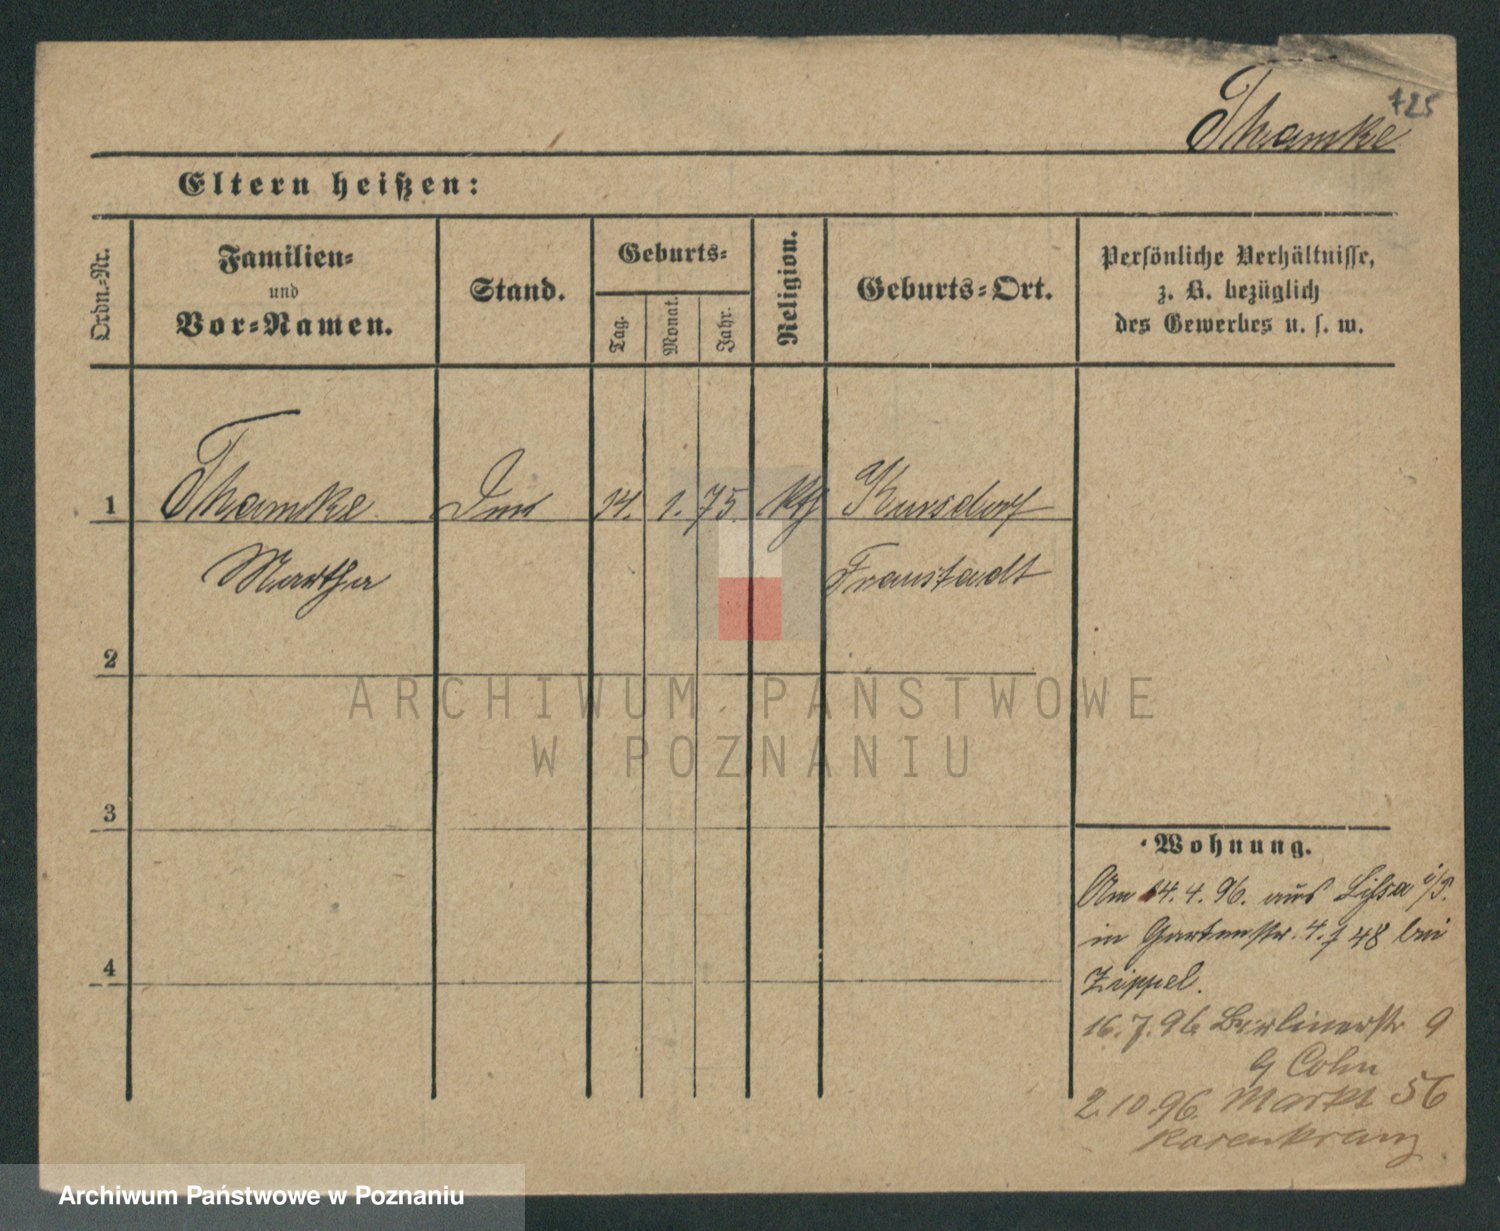 725
Thamke
Eltern heißen:
Ordn.-Nr.
Familien-
und
Vor-Namen.
Stand.
Geburts-
Tag.
Monat.
Jahr.
Religion.
Geburts-Ort.
Persönliche Verhältnisse,
z. B. bezüglich
des Gewerbes u. s. w.
1 Thamke 14. 1. 75. kth Kursdorf
Martha Fraustadt
2
3
4
Wohnung.
Am 14. 4. 96. aus Lissa i/P.
in Gartenstr. 4. 48 bei
Zippel.
16. 7. 96 Berlinerstr 9
Cohn
2.10.96. Markt 56
Rosenkranz
ARCHIWUM PAŃSTWOWE
W POZNANIU
Archiwum Państwowe w Poznaniu